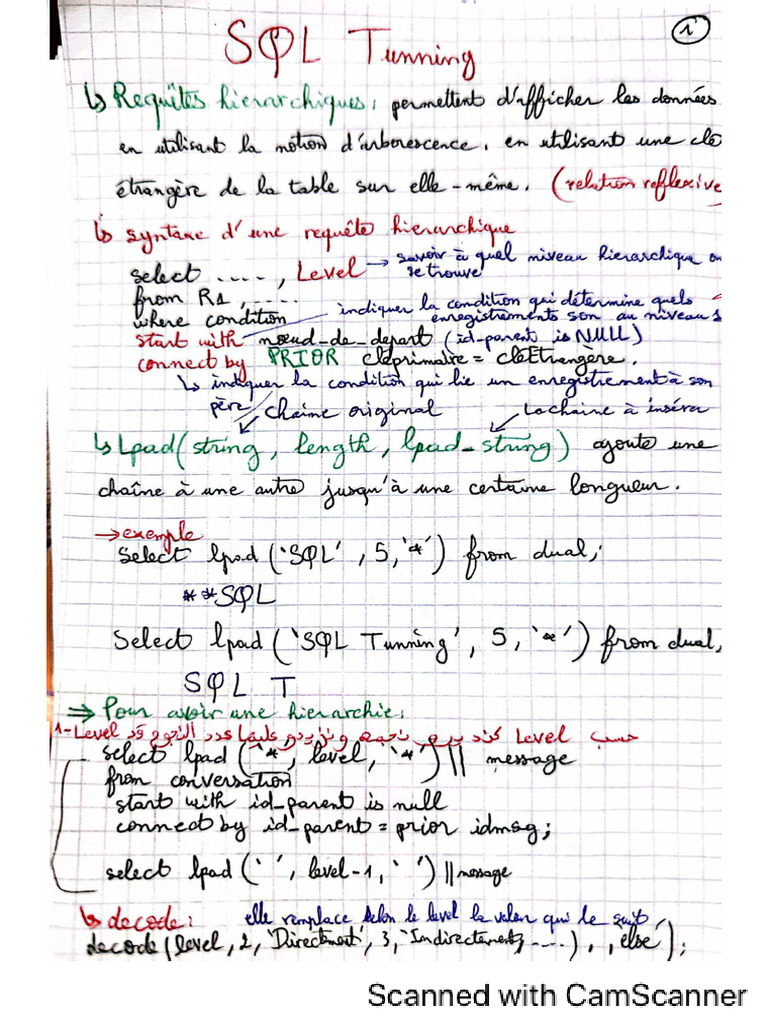 1
SQL Tunning
↳ Requêtes hierarchiques : permettent d'afficher les données
en utilisant la notion d'arborescence, en utilisant une clé
étrangère de la table sur elle-même. (relation reflexive
↳ syntaxe d'une requête hierarchique
select ...., Level → savoir à quel niveau hierarchique on
se trouve
from R1, ....
where condition
indiquer la condition qui détermine quels
enregistrements son au niveau 1
start with nœud_de_depart (id-parent is NULL)
connect by PRIOR cléprimaire = cléEtrangère.
↳ indiquer la condition qui lie un enregistrement à son
père
chaîne original
la chaîne à insérer
↳ Lpad(string, length, lpad_string) ajoute une
chaîne à une autre jusqu'à une certaine longueur.
→ exemple
Select lpad ('SQL', 5, '*') from dual;
**SQL
Select lpad ('SQL Tunning', 5, '*') from dual,
SQL T
⇒ Pour avoir une hierarchie :
1-Level حسب Level كند قد عدد النجوم
select lpad ('*', level, '*') || message
from conversation
start with id_parent is null
connect by id_parent = prior idmsg;
select lpad (' ', level-1, ' ') || message
↳ decode : elle remplace selon le level la valeur qui le suit
decode (level, 2, 'Directement', 3, 'Indirectement, ....), , 'else');
Scanned with CamScanner